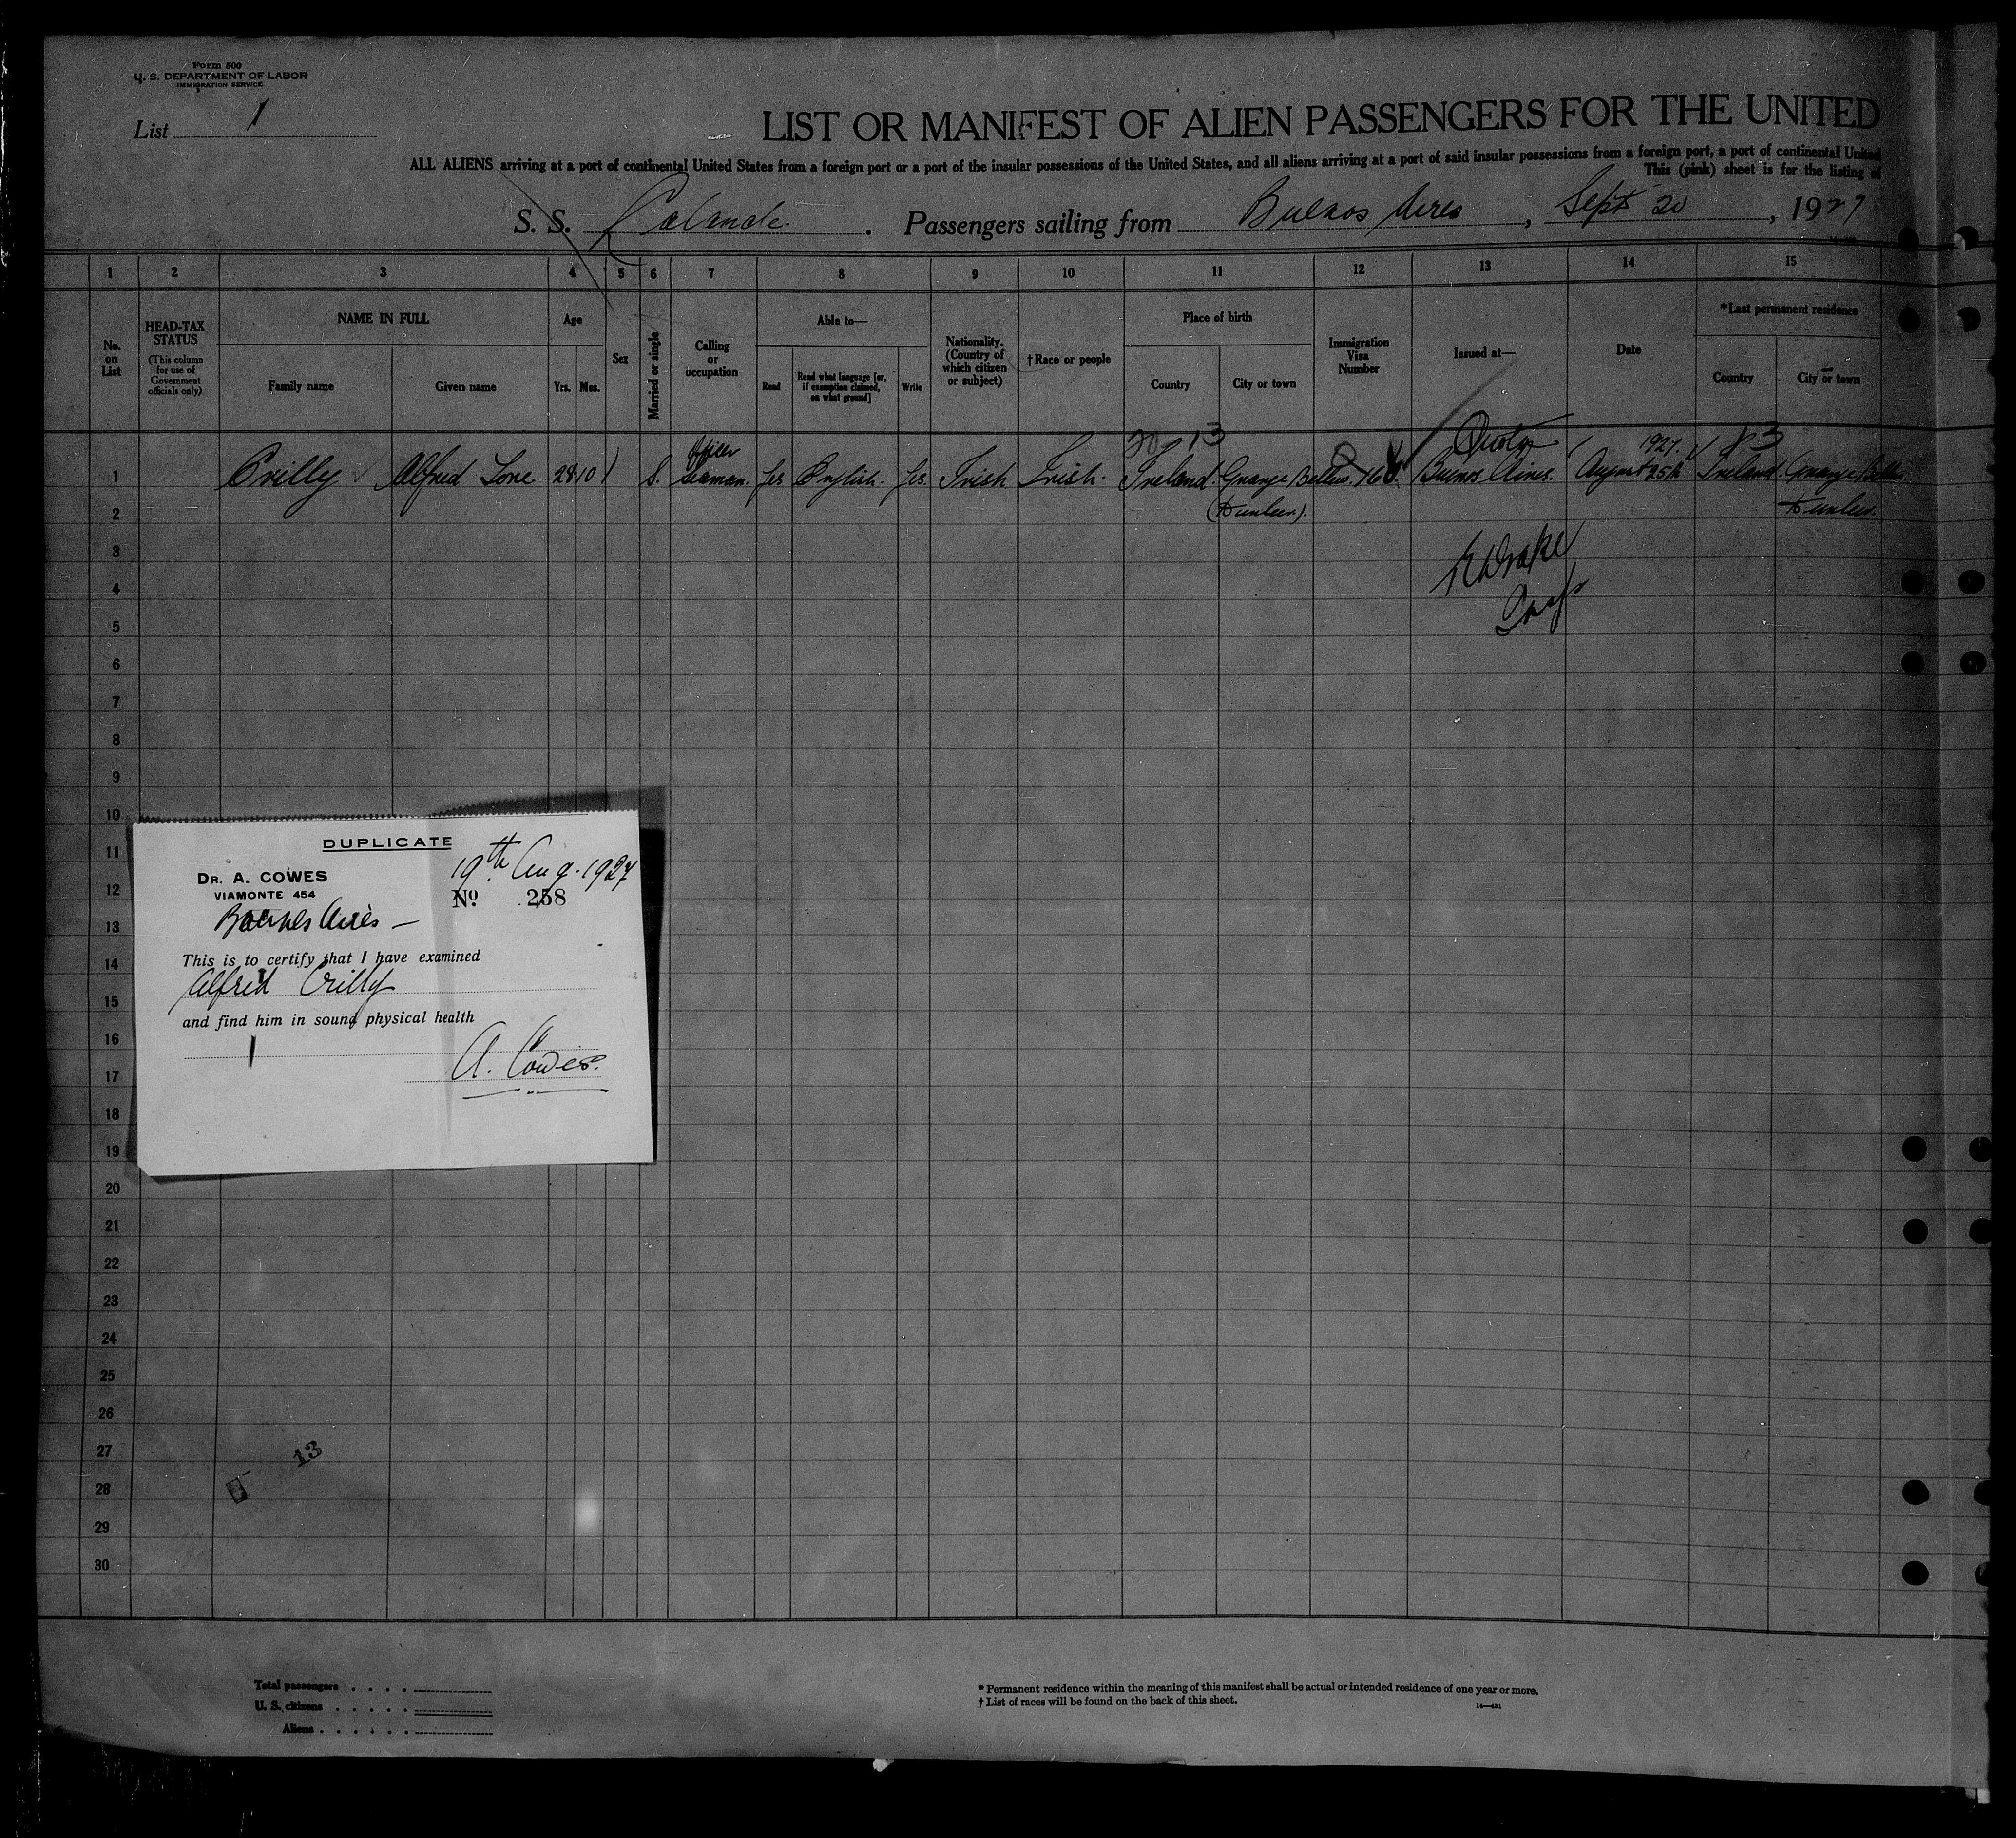 Form 500
U. S. DEPARTMENT OF LABOR
IMMIGRATION SERVICE
List 1
LIST OR MANIFEST OF ALIEN PASSENGERS FOR THE UNITED
ALL ALIENS arriving at a port of continental United States from a foreign port or a port of the insular possessions of the United States, and all aliens arriving at a port of said insular possessions from a foreign port, a port of continental United
This (pink) sheet is for the listing of
S. S. Passengers sailing from Buenos Aires, Sept 20, 1927
1 2 3 4 5 6 7 8 9 10 11 12 13 14 15
No. on List
HEAD-TAX STATUS
(This column for use of Government officials only)
NAME IN FULL
Family name
Given name
Age
Yrs. Mos.
Sex
Married or single
Calling or occupation
Able to—
Read
Read what language [or, if exemption claimed, on what ground]
Write
Nationality. (Country of which citizen or subject)
†Race or people
Place of birth
Country
City or town
Immigration Visa Number
Issued at—
Date
*Last permanent residence
Country
City or town
20 13 Quota 1927. 83
Officer
1 Crilly Alfred 28 10 S. Seaman. Yes English. Yes Irish Irish. Ireland. Grange 168. Buenos Aires. August 25th Ireland. Grange
2
3
4
5
6
7
8
9
10
11
12
13
14
15
16
17
18
19
20
21
22
23
24
25
26
27
28
29
30
DUPLICATE
19th Aug. 1927
DR. A. COWES
VIAMONTE 454
No. 258
Buenos Aires —
This is to certify that I have examined
Alfred Crilly
and find him in sound physical health
A. Cowes.
13
Total passengers
U. S. citizens
Aliens
* Permanent residence within the meaning of this manifest shall be actual or intended residence of one year or more.
† List of races will be found on the back of this sheet.
14—431